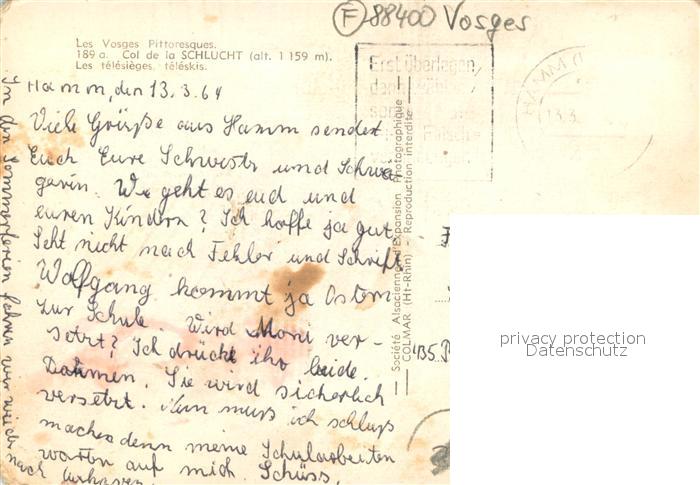 F 88400 Vosges
Les Vosges Pittoresques.
189 a. Col de la SCHLUCHT (alt. 1 159 m).
Les télésièges, téléskis.
Erst überlegen,
dann
HAMM (
13.3.
Hamm, den 13.3.64
Viele Grüße aus Hamm sendet
Euch Eure Schwester und Schwä
gerin. Wie geht es euch und
euren Kindern? Ich hoffe ja gut
Seht nicht nach Fehler und Schrift
Wolfgang kommt ja Ostern
zur Schule. Wird Moni ver-
setzt? Ich drücke ihr beide
Daumen. Sie wird sicherlich
versetzt. Nun muß ich schluß
machen denn meine Schularbeiten
warten auf mich. Schüss,
In den Sommerferien fahren wir wieder
nach
Société Alsacienne d'Expansion Photographique
COLMAR (Ht-Rhin) - Reproduction interdite
privacy protection
Datenschutz